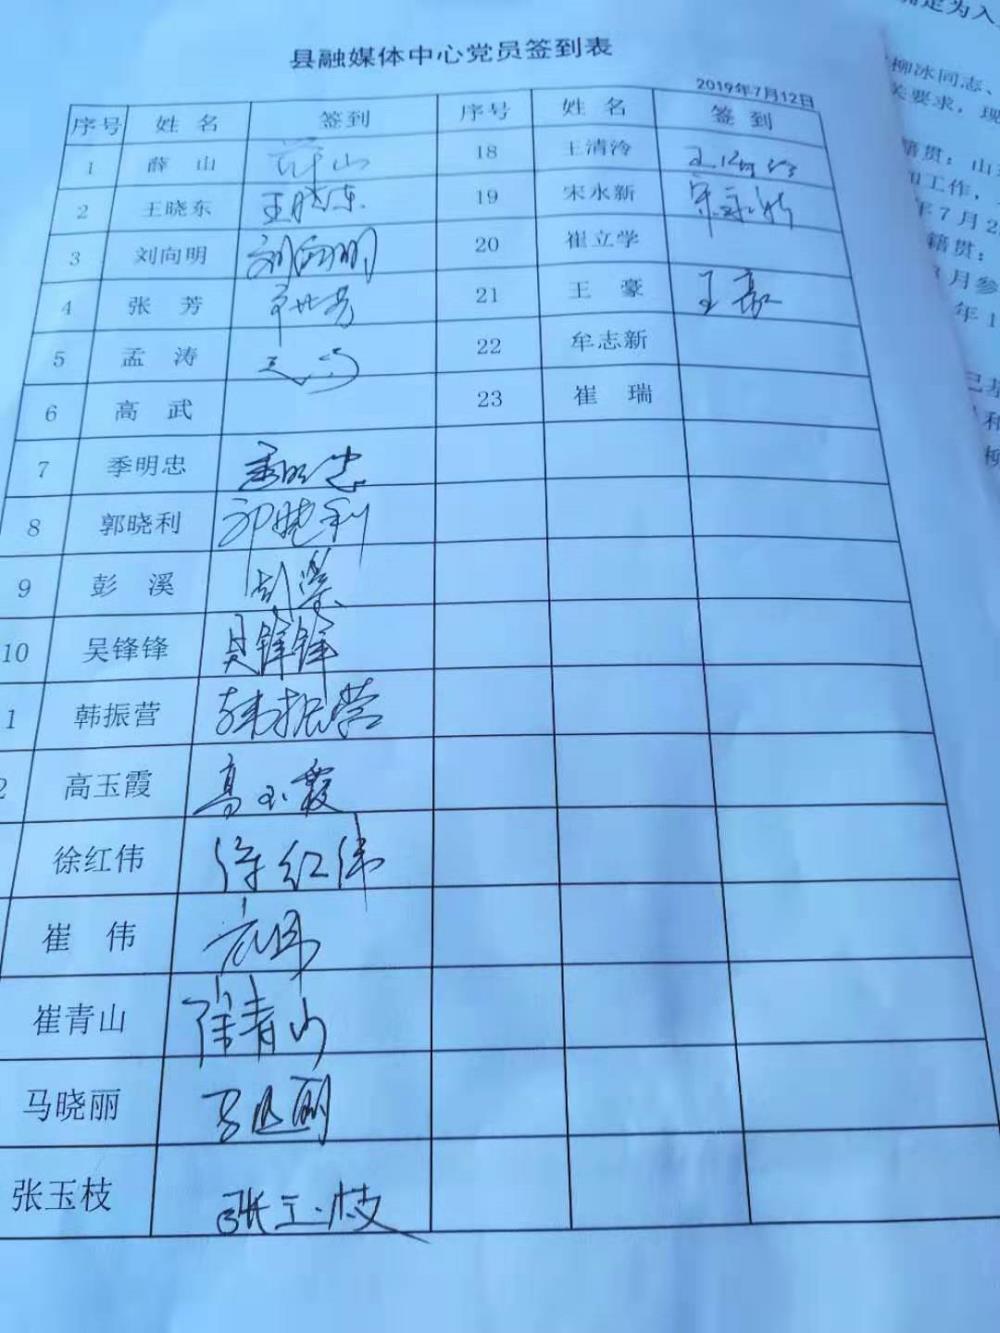 县融媒体中心党员签到表
2019年7月12日
序号 姓名 签到 序号 姓名 签到
1 薛山 薛山 18 王清泠
2 王晓东 王晓东 19 宋永新 宋永新
3 刘向明 刘向明 20 崔立学
4 张芳 21 王豪 王豪
5 孟涛 22 牟志新
6 高武 23 崔瑞
7 季明忠 季明忠
8 郭晓利 郭晓利
9 彭溪
10 吴锋锋 吴锋锋
1 韩振营 韩振营
2 高玉霞 高玉霞
徐红伟 徐红伟
崔伟
崔青山 崔青山
马晓丽 马晓丽
张玉枝 张玉枝
确定为入
柳冰同志、
关要求，现
籍贯：山
加工作，
年7月2
籍贯：
月参
年1